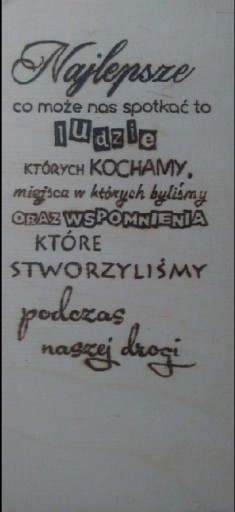 Najlepsze
co może nas spotkać to
ludzie
KTÓRYCH KOCHAMY,
miejsca w których byliśmy
ORAZ WSPOMNIENIA
KTÓRE
STWORZYLIŚMY
podczas
naszej drogi